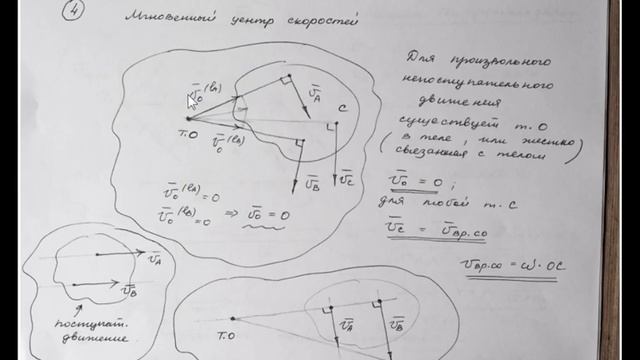 4
Мгновенный центр скоростей
Для произвольного
непоступательного
движения
существует т. О
(в теле, или жестко
связанная с телом)
v̄₀ = 0 ;
для любой т. С
v̄_C = v̄_вр.co
v_вр.co = ω · OC
v̄_A
C
v̄₀
т.О
v̄₀
v̄_B
v̄_C
v̄₀ = 0
v̄₀ = 0 ⇒ v̄₀ = 0
v̄_A
v̄_B
поступат.
движение
т.О
v̄_A
v̄_B